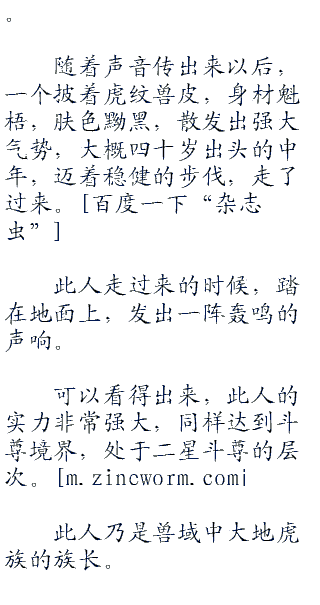 。
随着声音传出来以后，
一个披着虎纹兽皮，身材魁
梧，肤色黝黑，散发出强大
气势，大概四十岁出头的中
年，迈着稳健的步伐，走了
过来。[百度一下“杂志
虫”]
此人走过来的时候，踏
在地面上，发出一阵轰鸣的
声响。
可以看得出来，此人的
实力非常强大，同样达到斗
尊境界，处于二星斗尊的层
次。[m.zincworm.com]
此人乃是兽域中大地虎
族的族长。